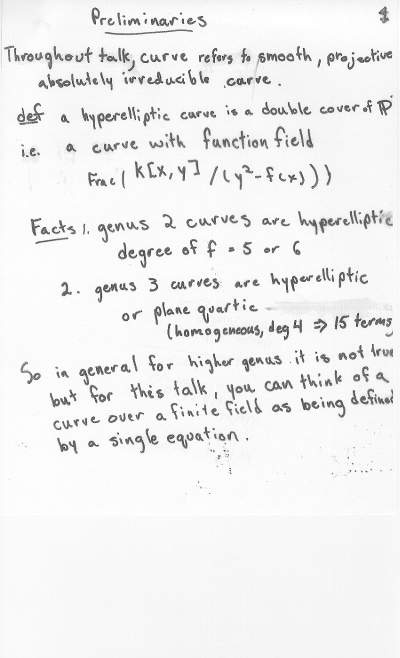 Preliminaries
1
Throughout talk, curve refers to smooth, projective
absolutely irreducible curve.
def a hyperelliptic curve is a double cover of P
i.e. a curve with function field
Frac( K[x,y] / (y²-f(x)))
Facts 1. genus 2 curves are hyperelliptic
degree of f = 5 or 6
2. genus 3 curves are hyperelliptic
or plane quartic
(homogeneous, deg 4 ⇒ 15 terms
So in general for higher genus it is not true
but for this talk, you can think of a
curve over a finite field as being defined
by a single equation.